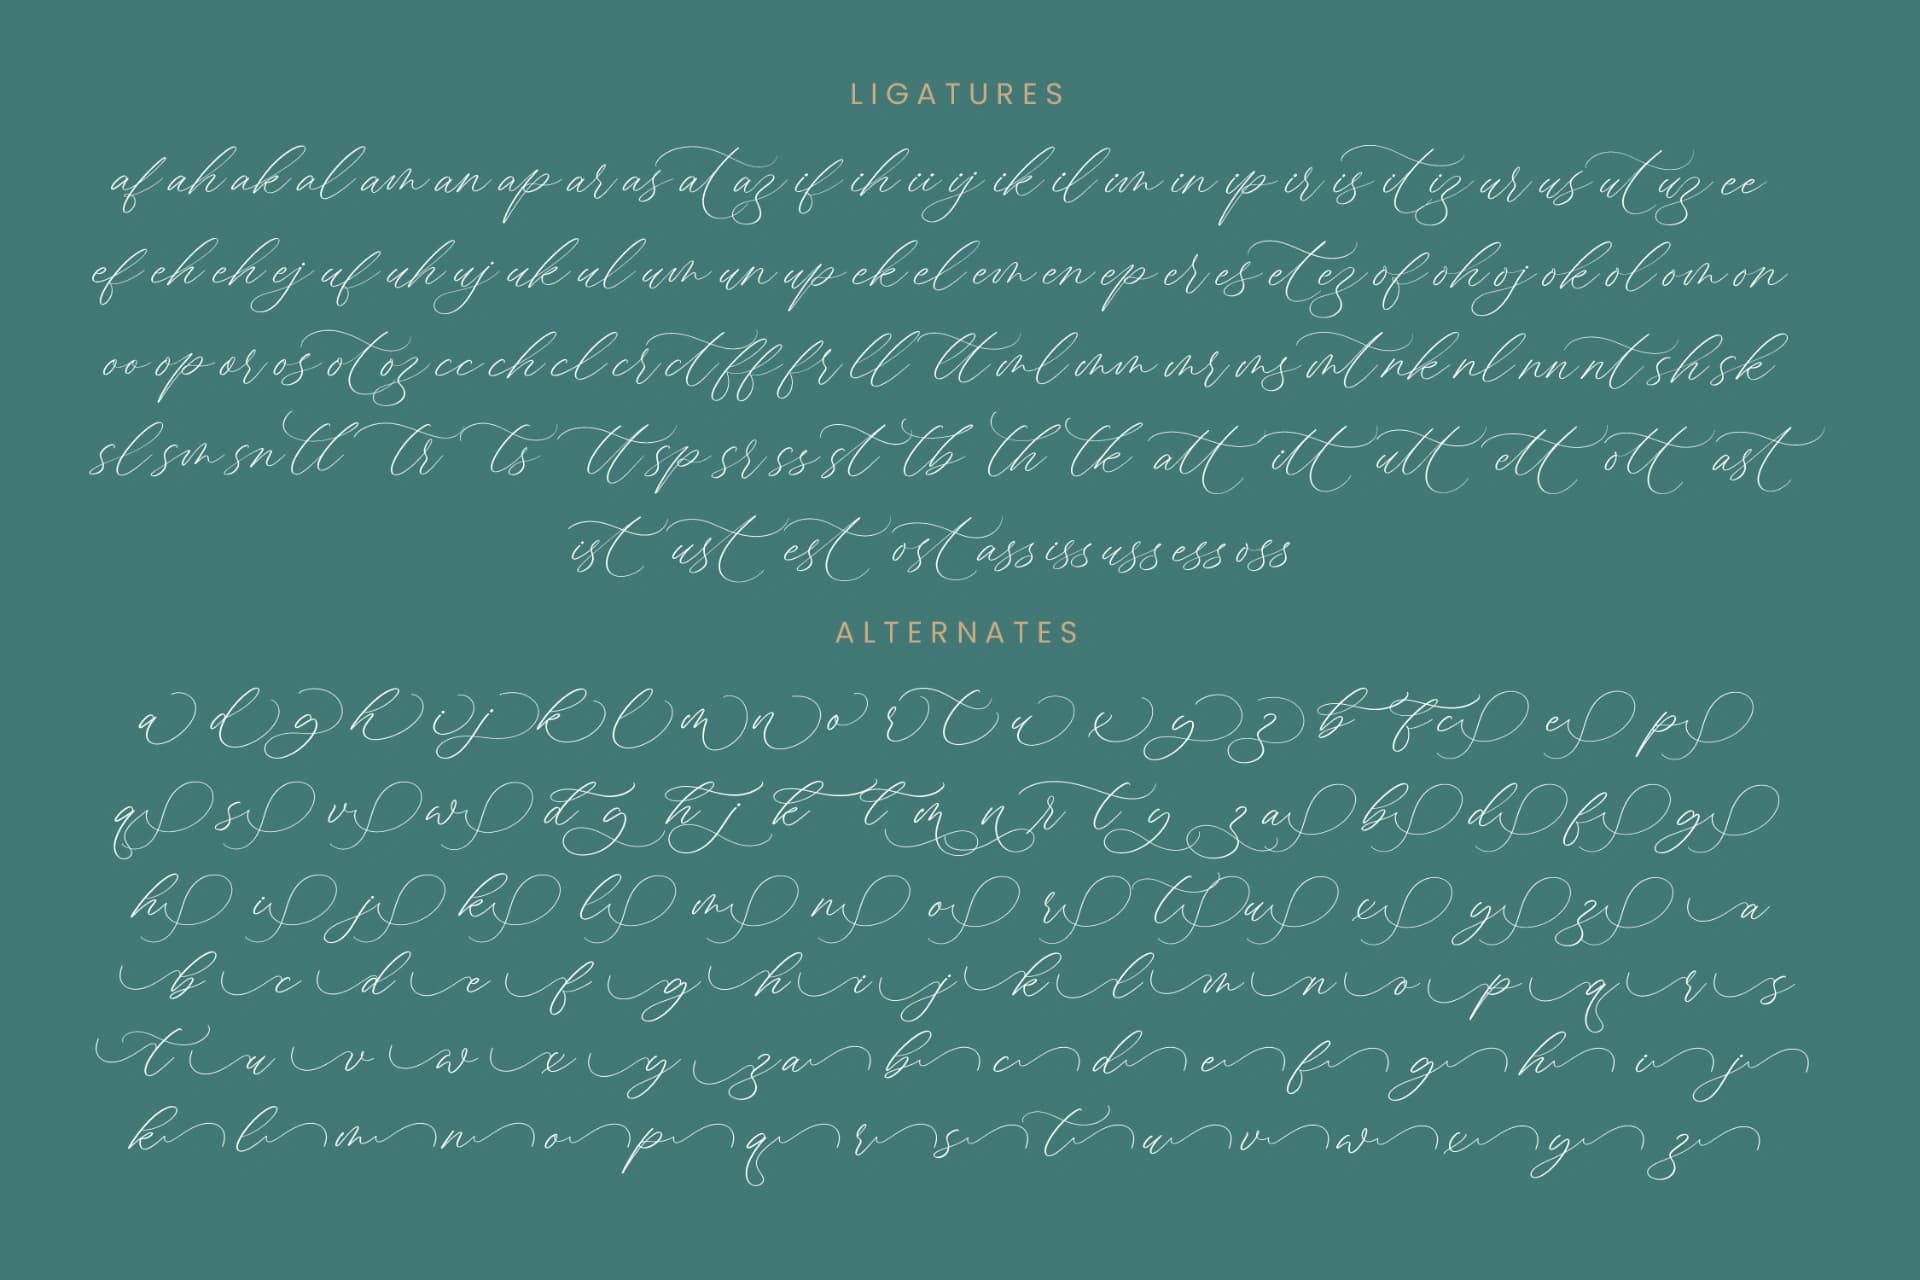 LIGATURES
af ah ak al am an ap ar as at az if ih ii ij ik il im in ip ir is it iz ur us ut uz ee
ef eh eh ej uf uh uj uk ul um un up ek el em en ep er es et ez of oh oj ok ol om on
oo op or os ot oz cc ch cl cr ct ff fr ll lt ml mm mr ms mt nk nl nn nt sh sk
sl sm sn tl tr ts tt sp sr ss st tb th tk att itt utt ett ott ast
ist ust est ost ass iss uss ess oss
ALTERNATES
a d g h i j k l m n o r t u x y z b f c e p
q s v w d g h j k t m n r t y z a b d f g
h i j k l m n o r t u x y z a
b c d e f g h i j k l m n o p q r s
t u v w x y z a b c d e f g h i j
k l m n o p q r s t u v w x y z